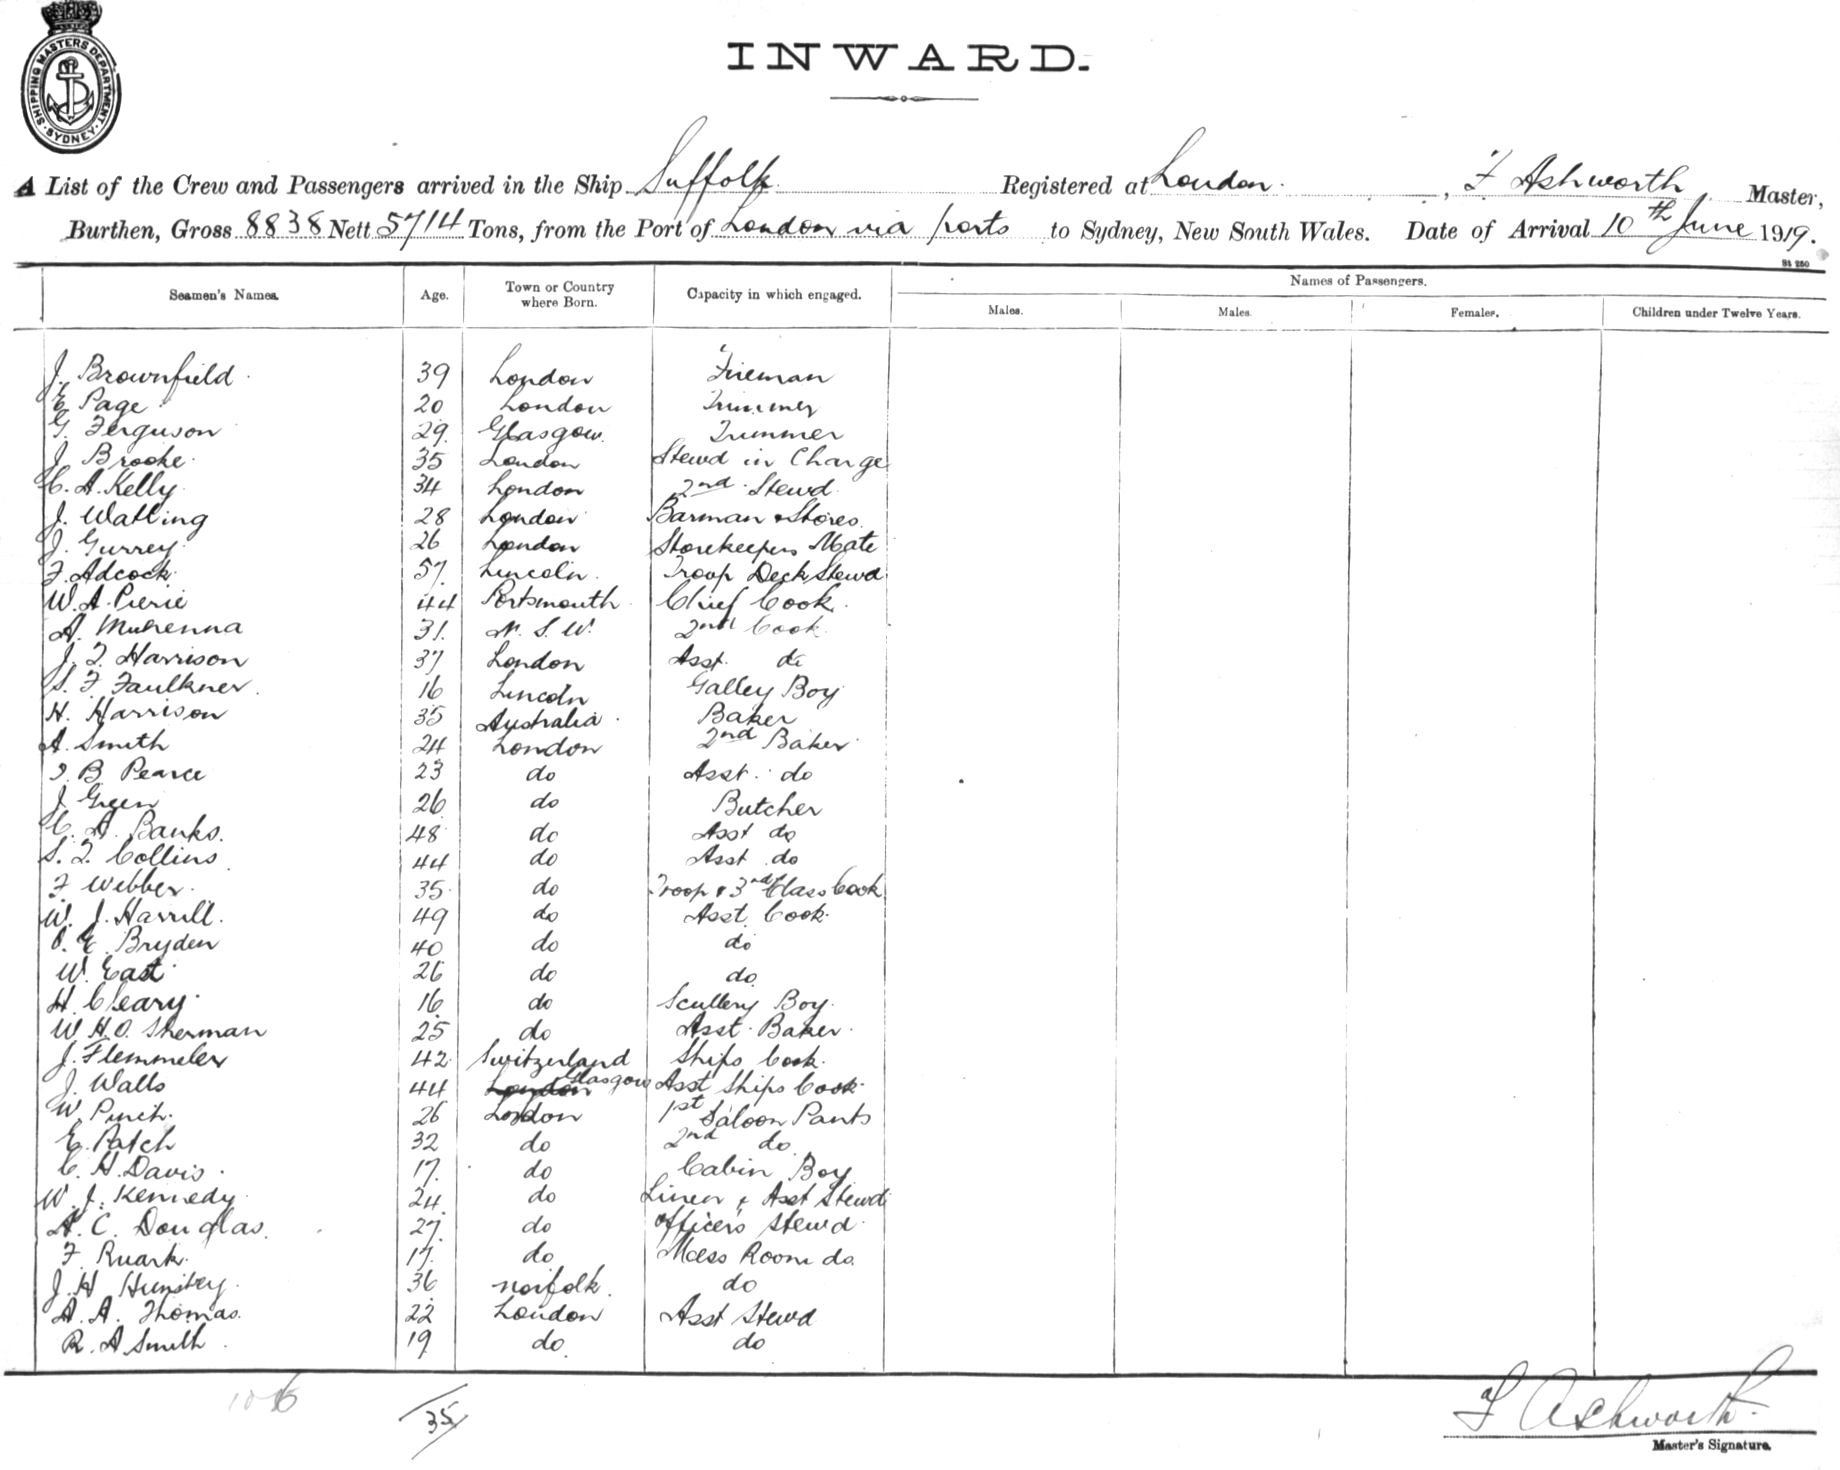 SHIPPING MASTERS DEPARTMENT. SYDNEY.
INWARD.
A List of the Crew and Passengers arrived in the Ship Suffolk Registered at London. , F Ashworth Master,
Burthen, Gross 8838 Nett 5714 Tons, from the Port of London via ports to Sydney, New South Wales. Date of Arrival 10th June 1919.
Seamen's Names. Age. Town or Country where Born. Capacity in which engaged. Names of Passengers.
Males. Males. Females. Children under Twelve Years.
J. Brownfield 39 London Fireman
E Page 20 London Trimmer
G. Ferguson 29 Glasgow Trimmer
J Brooke 35 London Stewd in Charge
C. A. Kelly 34 London 2nd Stewd
J. Watling 28 London Barman & Stores
J. Gurrey 26 London Storekeepers Mate
F. Adcock 57 Lincoln Troop Deck Stewd
W. A. Pierie 44 Portsmouth Chief Cook
A. 31 N. S. W. 2nd Cook
J. T. Harrison 37 London Asst. do
S. F. Faulkner 16 Lincoln Galley Boy
H. Harrison 35 Australia Baker
A. Smith 24 London 2nd Baker
B Pearce 23 do Asst. do
J Green 26 do Butcher
C. A. Banks. 48 do Asst do
S. T. Collins 44 do Asst do
F Webber 35 do Troop & 3rd Class Cook
W. J. Harrill. 49 do Asst. Cook
E. Bryden 40 do do
W. East 26 do do
H Cleary 16 do Scullery Boy
W H. O. Sherman 25 do Asst. Baker
J. Flemmeler 42 Switzerland Ships Cook
J. Walls 44 London Glasgow Asst Ships Cook
W Pinch. 26 London 1st Saloon Pants
E. Patch 32 do 2nd do
C. H. Davis 17 do Cabin Boy
W. J. Kennedy 24 do Linen & Asst Stewd
A. C. Douglas. 27 do Officers Stewd
F. Ruark. 17 do Mess Room do
J. H 36 Norfolk. do
A. A. Thomas. 22 London Asst Stewd
R. A Smith 19 do do
35
F Ashworth.
Master's Signature.